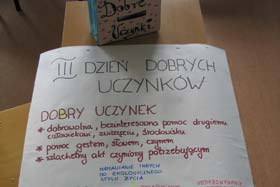 Dobre
Uczynki
III DZIEŃ DOBRYCH
UCZYNKÓW
DOBRY UCZYNEK
* dobrowolna, bezinteresowna pomoc drugiemu
człowiekowi, zwierzęciu, środowisku
* pomoc gestem, słowem, czynem
* szlachetny akt czyniony potrzebującym
NAMAWIANIE INNYCH
DO EKOLOGICZNEGO
STYLU ŻYCIA